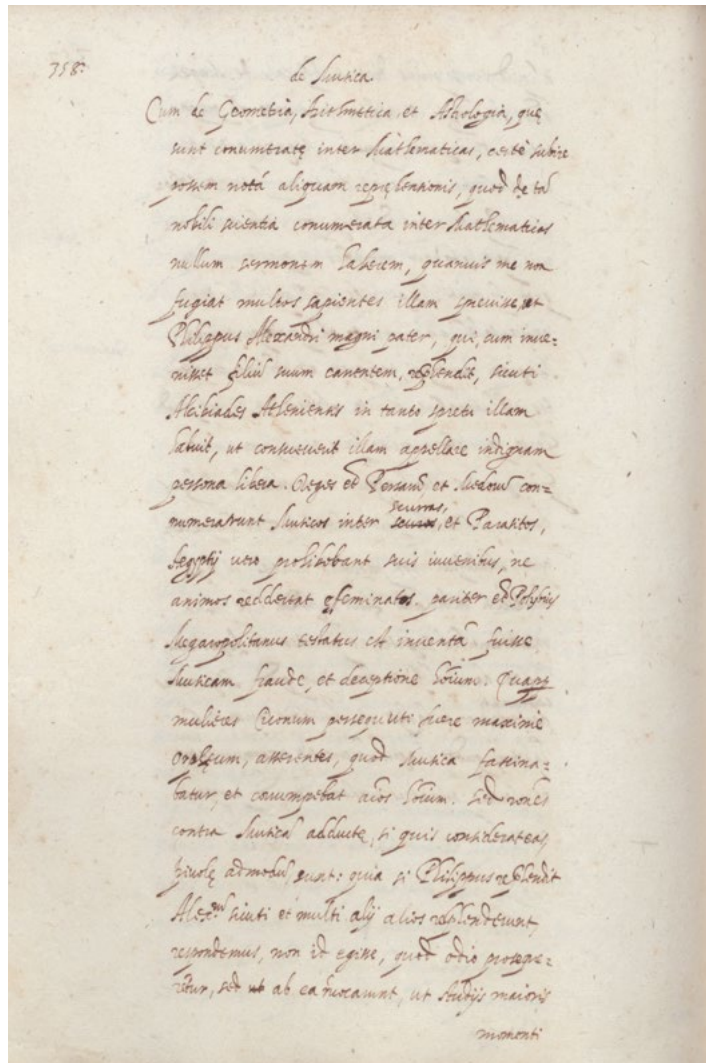 758.
de Musica.
Cum de Geometria, Arithmetica, et Astrologia, quę
sunt conumeratę inter Mathematicas, certè subire
possem notā aliquam repręhensionis, quod de ta
nobili scientia conumerata inter Mathematicas
nullum sermonem haberem, quamuis me non
fugiat multos sapientes illam spreuisse, et
Philippus Alexandri magni pater, qui, cum inue=
nisset filiū suum canentem, rephendit, sicuti
Alcibiades Atheniensis in tanto spretu illam
habuit, ut consueuerit illam appellare indignam
persona libera. Reges et Persarū, et Medorū con=
numerarunt Musicos inter scurras, et Parasitos,
Aegyptij vero prohibebant suis iuuenibus, ne
animos redderet effeminatos. pariter et Polybius
Megaropolitanus testatus est inuentā fuisse
Musicam fraude, et deceptione hōium. Quare
mulieres Ciconum persequuti fuere maxime
Orpheum, asserentes, quod Musica fascina=
batur, et corrumpebat aīos hōium. sed rōnes
contra Musicā adductę, si quis consideret eas,
friuolę admodū sunt: quia si Philippus rephendit
Alex.um sicuti et multi alij alios rephenderunt,
respondemus, non id egisse, quod odio proseque=
retur, sed ut ab ea reuocarunt, ut studijs maioris
momenti